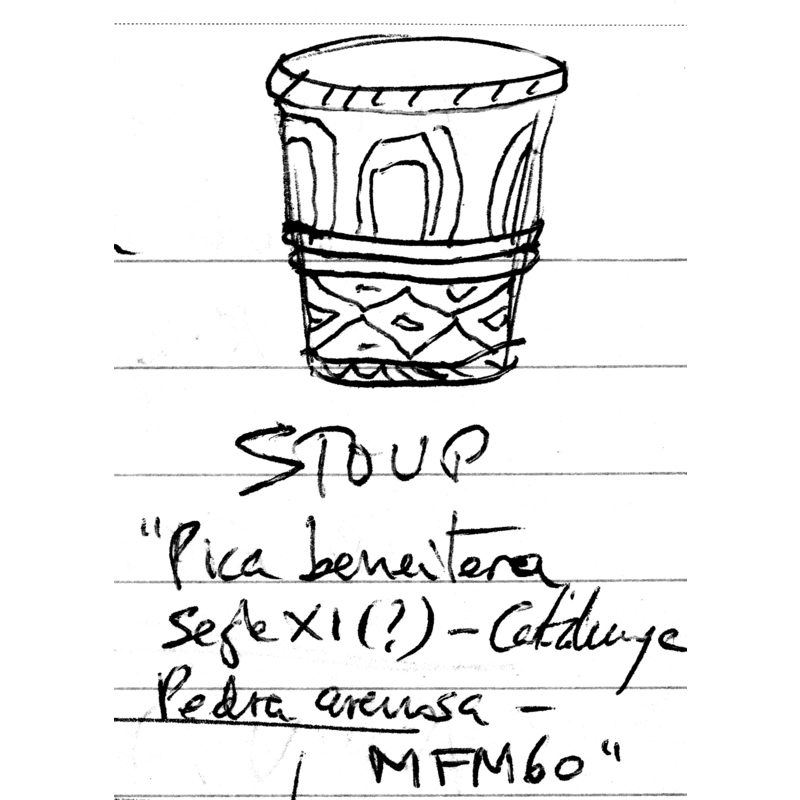 STOUP
"Pica beneitera
segle XI (?) - Catalunya
Pedra arenosa -
MFM60"